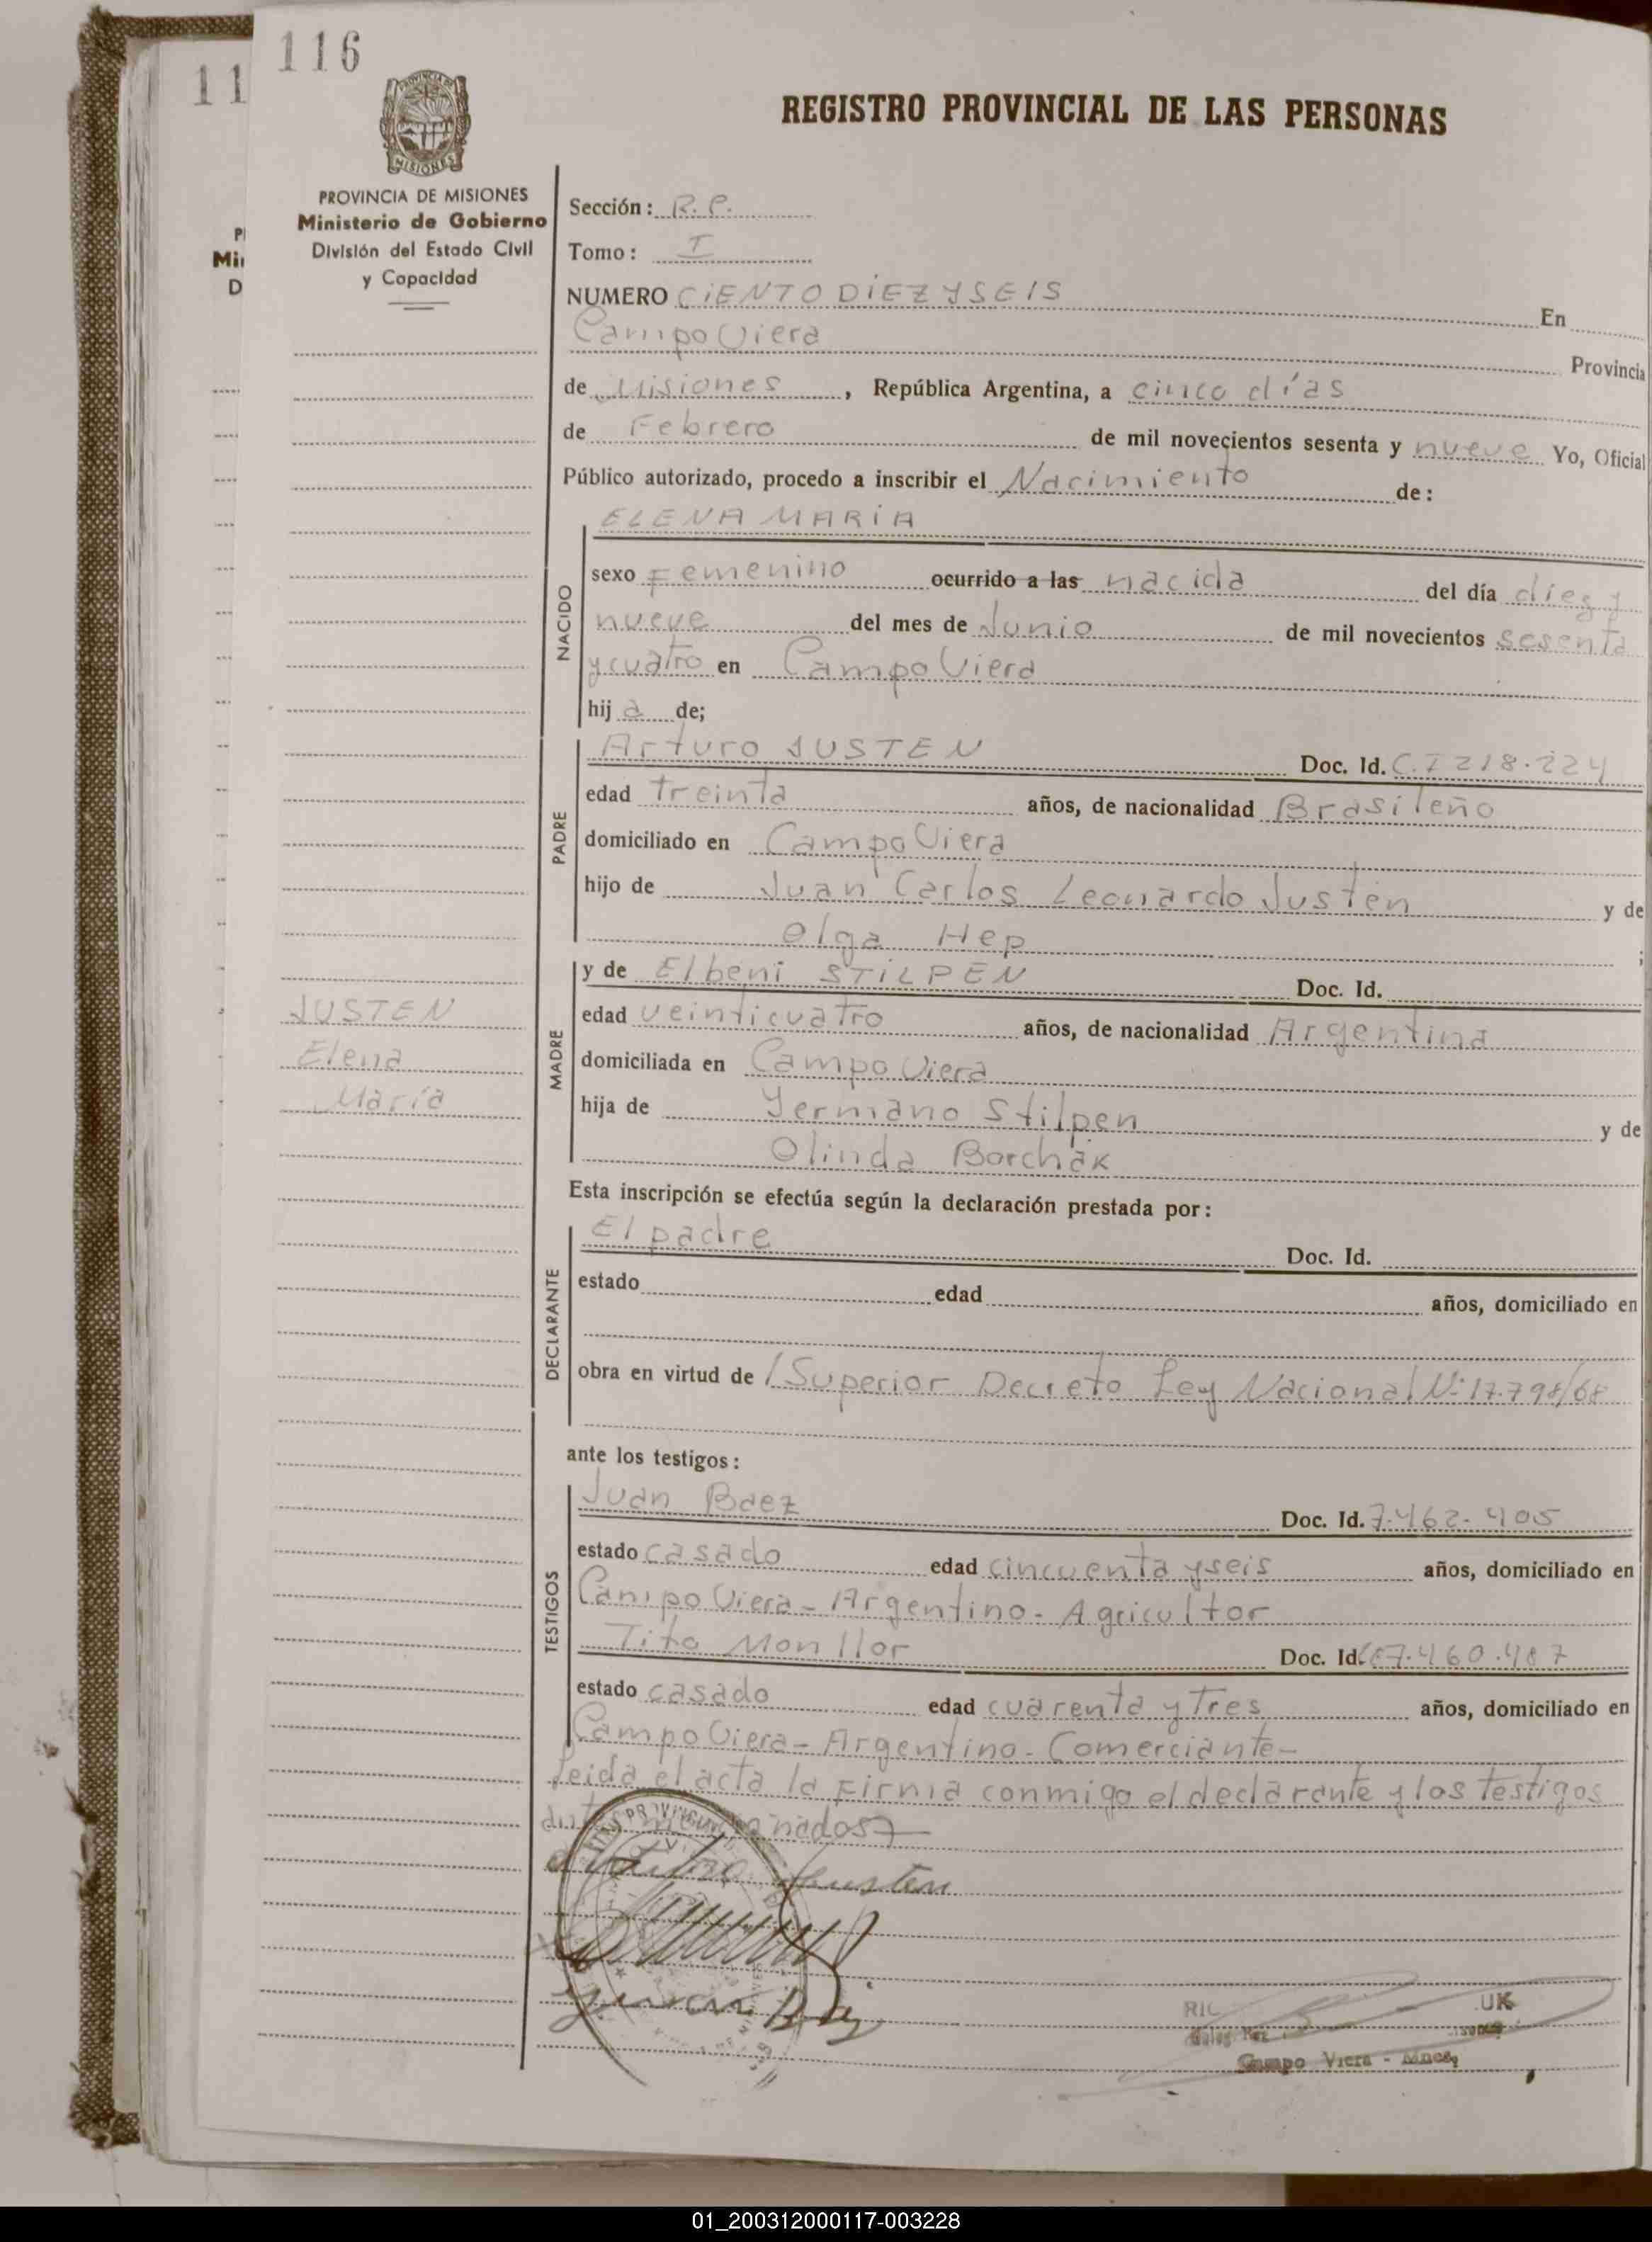 116
11
REGISTRO PROVINCIAL DE LAS PERSONAS
MISIONES
PROVINCIA DE MISIONES
Ministerio de Gobierno
División del Estado Civil
y Capacidad
Sección: R. P.
Tomo: I
NUMERO CIENTO DIEZ Y SEIS En
Campo Viera Provincia
de Misiones, República Argentina, a cinco días
de Febrero de mil novecientos sesenta y nueve Yo, Oficial
Público autorizado, procedo a inscribir el Nacimiento de:
ELENA MARIA
NACIDO
sexo Femenino ocurrido a las nacida del día diez y
nueve del mes de Junio de mil novecientos sesenta
y cuatro en Campo Viera
hij a de;
PADRE
Arturo JUSTEN Doc. Id. C.I 218.224
edad treinta años, de nacionalidad Brasileño
domiciliado en Campo Viera
hijo de Juan Carlos Leonardo Justen y de
Olga Hep ;
MADRE
y de Elbeni STILPEN Doc. Id.
JUSTEN
Elena
María
edad veinticuatro años, de nacionalidad Argentina
domiciliada en Campo Viera
hija de Germano Stilpen y de
Olinda Borchak
Esta inscripción se efectúa según la declaración prestada por:
DECLARANTE
El padre Doc. Id.
estado edad años, domiciliado en
obra en virtud de /Superior Decreto Ley Nacional Nº 17.798/68
ante los testigos:
TESTIGOS
Juan Baez Doc. Id. 7.462.405
estado casado edad cincuenta y seis años, domiciliado en
Campo Viera - Argentino - Agricultor
Tito Monllor Doc. Id. 7.460.487
estado casado edad cuarenta y Tres años, domiciliado en
Campo Viera - Argentino - Comerciante -
Leida el acta la Firma conmigo el declarante y los testigos
Arturo Justen
Juan Baez
Campo Viera - Mnes.
01_200312000117-003228